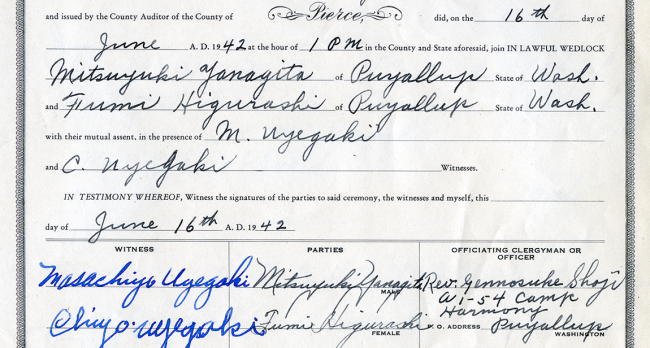 and issued by the County Auditor of the County of Pierce, did, on the 16th day of
June A. D. 1942 at the hour of 1 PM in the County and State aforesaid, join IN LAWFUL WEDLOCK
Mitsuyuki Yanagita of Puyallup State of Wash.
and Fumi Higurashi of Puyallup State of Wash.
with their mutual assent, in the presence of M. Uyegaki
and C. Uyegaki Witnesses.
IN TESTIMONY WHEREOF, Witness the signatures of the parties to said ceremony, the witnesses and myself, this
day of June 16th A. D. 1942
WITNESS PARTIES OFFICIATING CLERGYMAN OR OFFICER
Masachiyo Uyegaki Mitsuyuki Yanagita MALE Rev. Gennosuke Shoji
A 1-54 Camp
Harmony
Chiyo Uyegaki Fumi Higurashi FEMALE P. O. ADDRESS Puyallup WASHINGTON